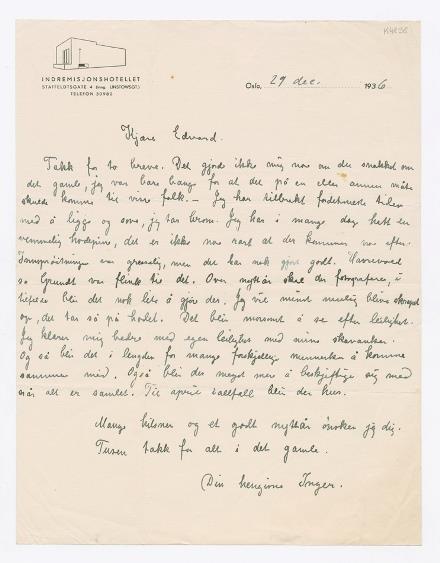 K4836
INDREMISJONSHOTELLET
STAFFELDTSGATE 4 (inng. LINSTOWSGT.)
TELEFON 30982
Oslo, 29 dec. 1936
Kjære Edvard.
Takk for to breve. Det gjorde ikke mig noe om du snakket om
det gamle, jeg var bare bange for at det på en eller annen måte
skulde komme til vise folk. – Jeg har tilbrakt tiden
med å ligge og sove, jeg tar brom. Jeg har i mange dage hatt en
vemmelig hodepine, det er ikke noe rart at der kommer noe efter.
var grusomelig, men det har nok gjort godt.
sa Grundt var flink til det. Over nyttår skal der fotograferes, i
blir det nok lets å gjøre der. Jeg vil minst mulig blive
op, det tar så på hodet. Det blir morsomt å se efter leilighet.
Jeg klarer mig bedre med egen leilighet med mine skavanker.
Og så blir det i lengden for mange forskjellige mennesker å komme
sammen med. Også blir der meget mere å beskjeftige sig med
når alt er samlet. Til april iallfall blir der hus.
Mange hilsner og et godt nyttår ønsker jeg dig.
Tusen takk for alt i det gamle.
Din hengivne Inger.